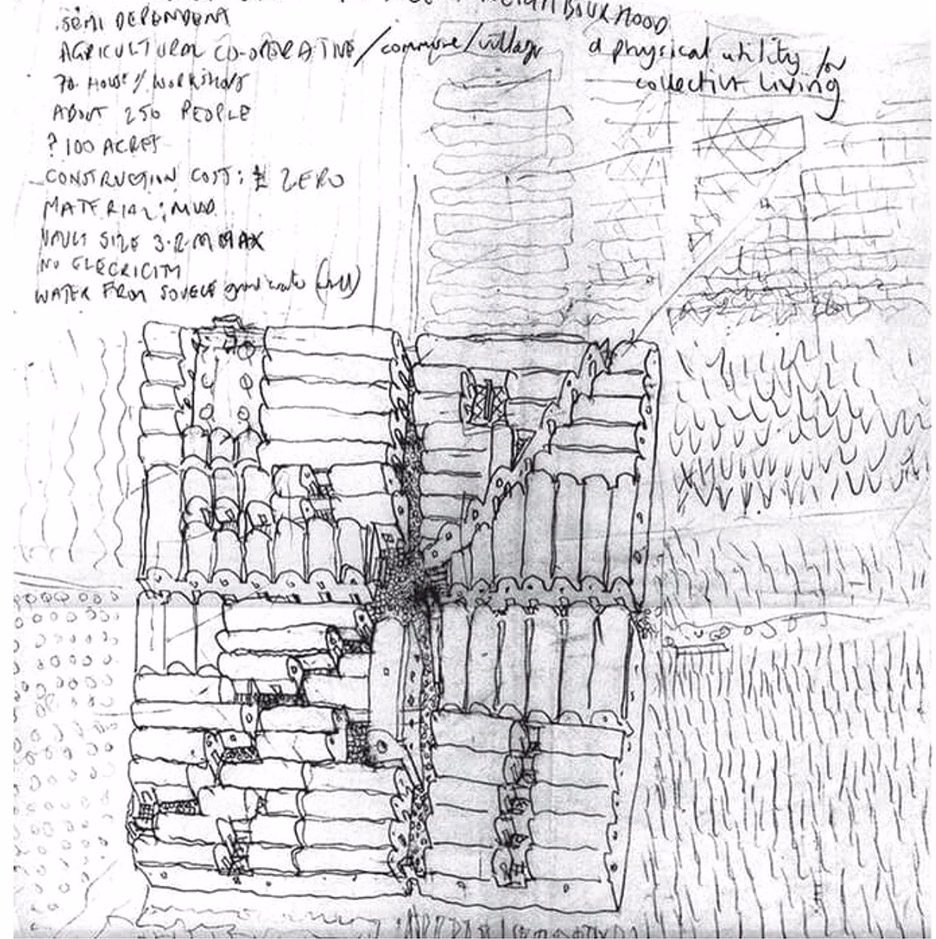 NEIGHBOURHOOD
SEMI DEPENDENT
AGRICULTURAL CO-OPERATIVE/commune/village
70 House/Workshops
ABOUT 250 PEOPLE
? 100 ACRES
CONSTRUCTION COST: £ ZERO
MATERIAL: MUD
VAULT SIZE 3.2M MAX
NO ELECRICITY
WATER FROM ground water (well)
a physical utility for
collective living